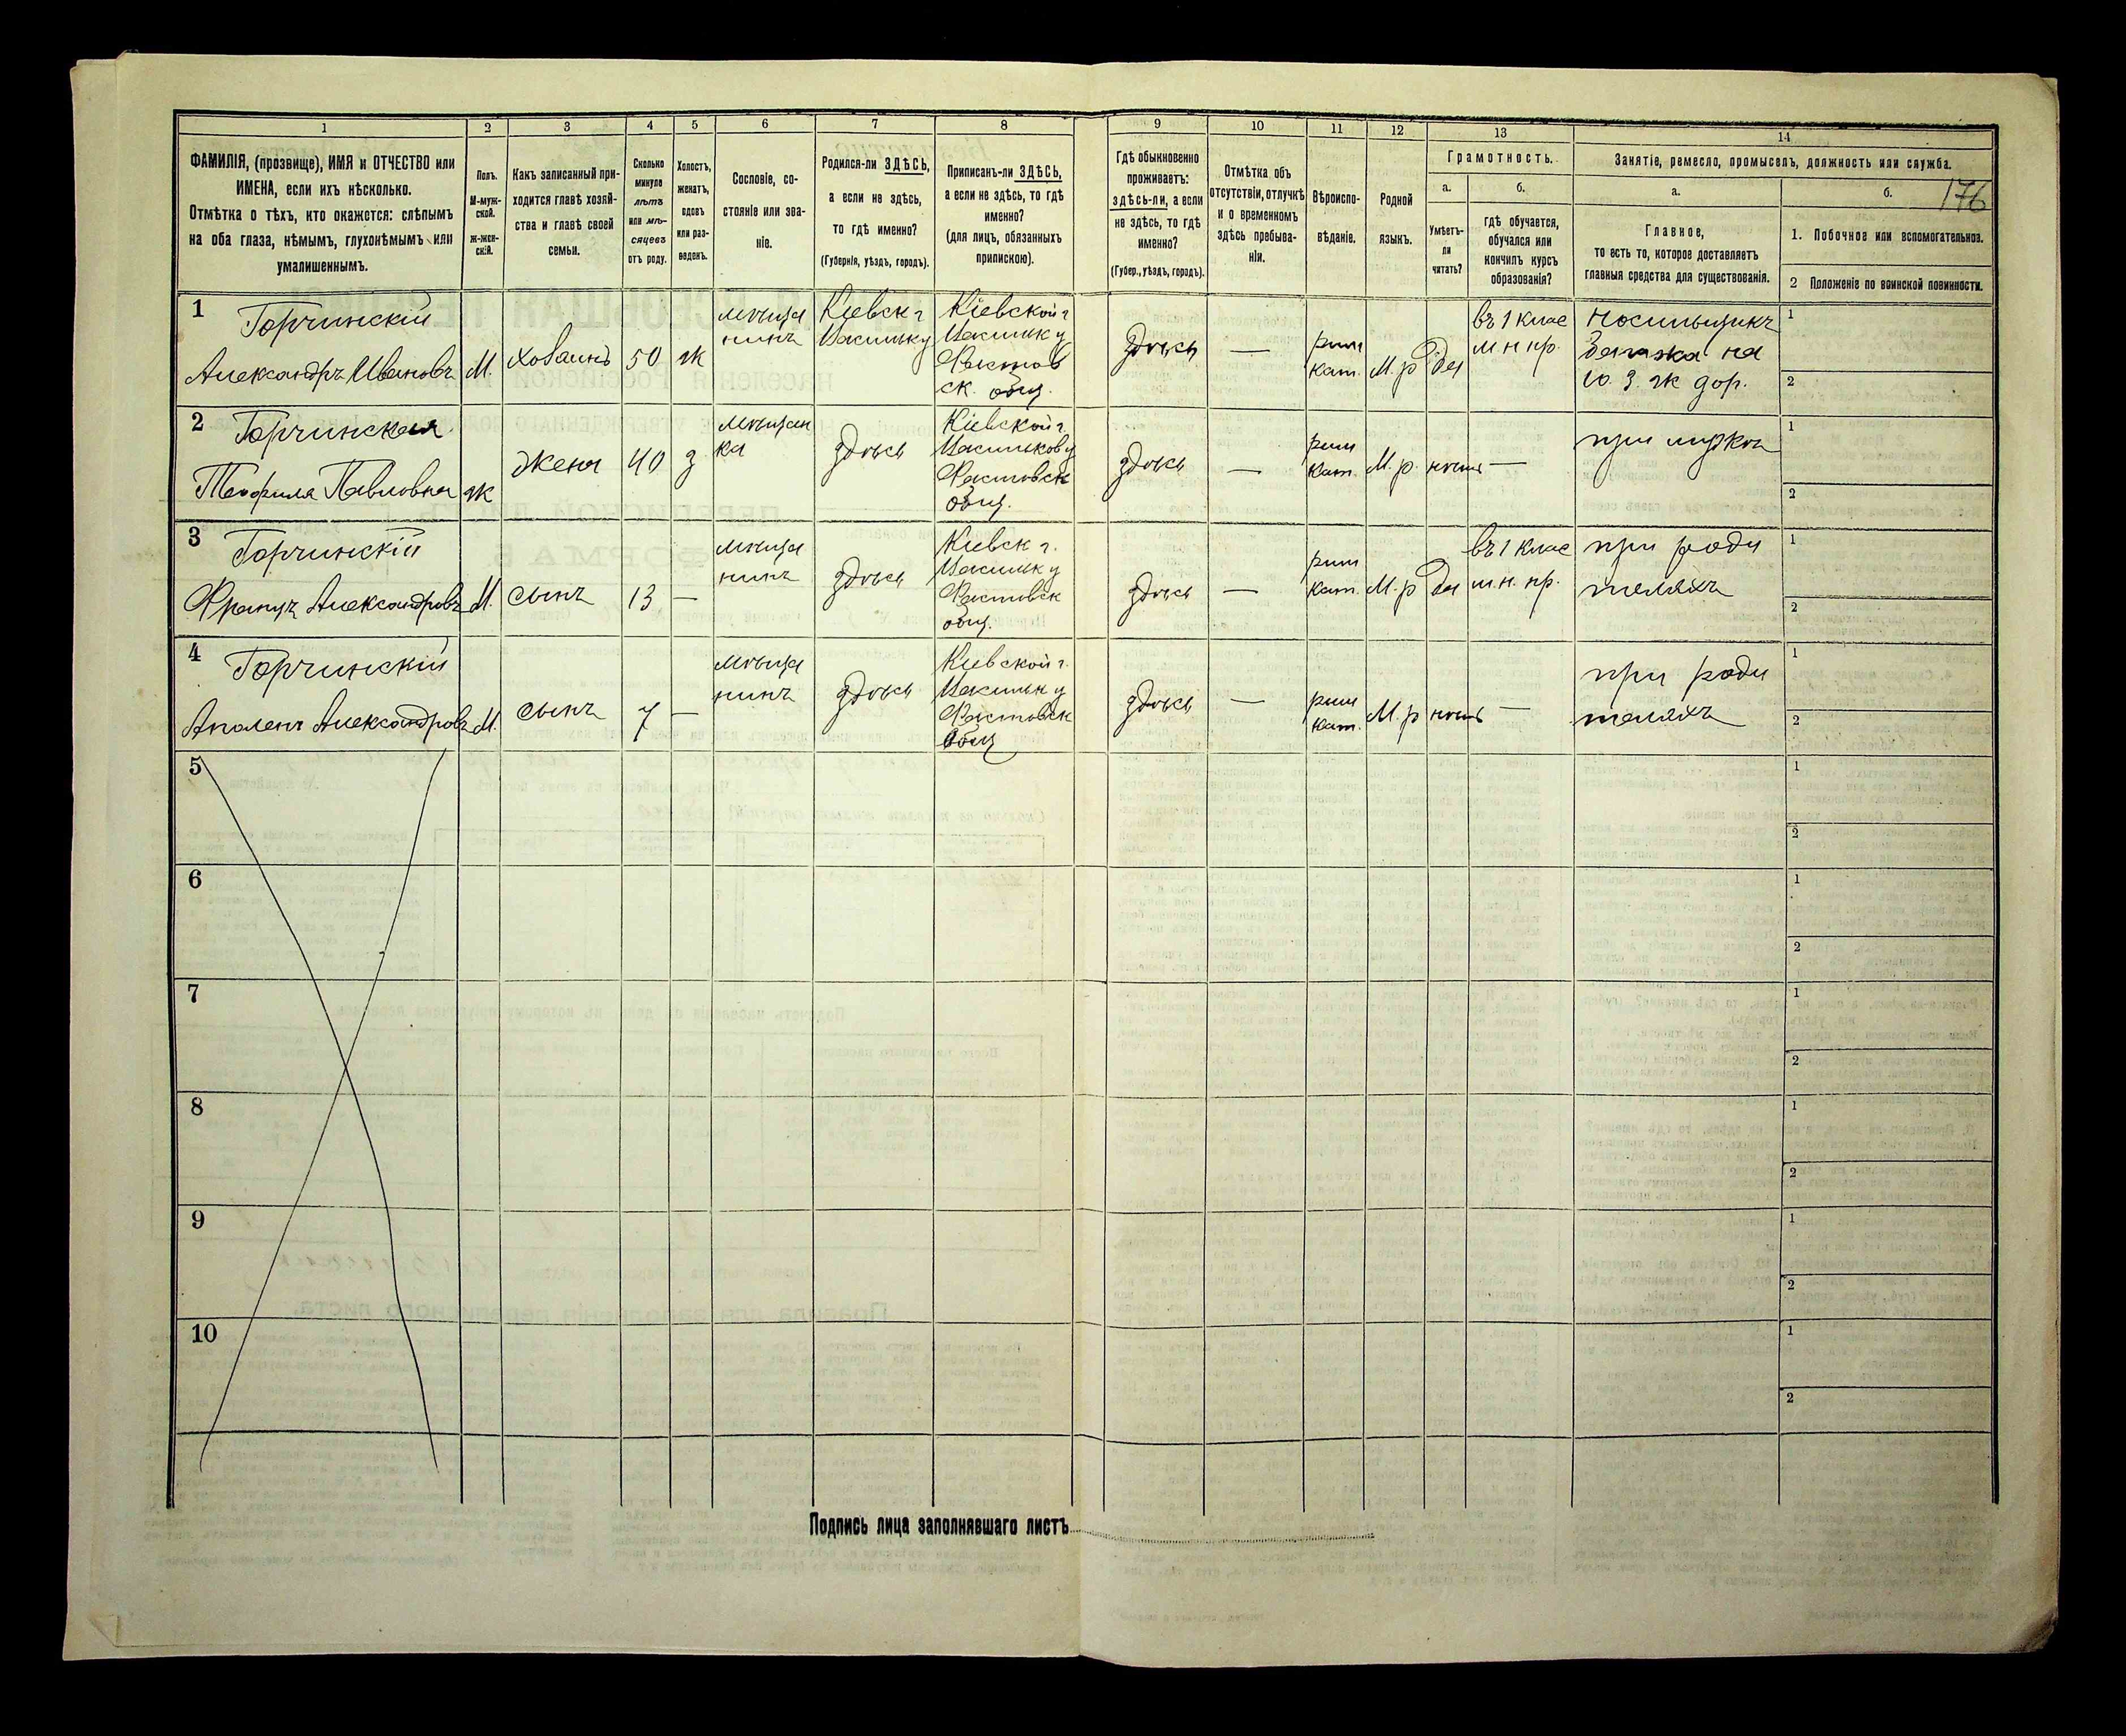 176
1 2 3 4 5 6 7 8 9 10 11 12 13 14
ФАМИЛІЯ, (прозвище), ИМЯ и ОТЧЕСТВО или
ИМЕНА, если ихъ нѣсколько.
Отмѣтка о тѣхъ, кто окажется: слѣпымъ
на оба глаза, нѣмымъ, глухонѣмымъ или
умалишеннымъ.
Полъ.
М-муж-
ской.
ж-жен-
скій.
Какъ записанный при-
ходится главѣ хозяй-
ства и главѣ своей
семьи.
Сколько
минуло
лѣтъ
или мѣ-
сяцевъ
отъ роду.
Холостъ,
женатъ,
вдовъ
или раз-
веденъ.
Сословіе, со-
стояніе или зва-
ніе.
Родился-ли ЗДѢСЬ,
а если не здѣсь,
то гдѣ именно?
(Губернія, уѣздъ, городъ).
Приписанъ-ли ЗДѢСЬ,
а если не здѣсь, то гдѣ
именно?
(для лицъ, обязанныхъ
припискою).
Гдѣ обыкновенно
проживаетъ:
здѣсь-ли, а если
не здѣсь, то гдѣ
именно?
(Губер., уѣздъ, городъ).
Отмѣтка объ
отсутствіи, отлучкѣ
и о временномъ
здѣсь пребыва-
ніи.
Вѣроиспо-
вѣданіе.
Родной
языкъ.
Грамотность.
а.
Умѣетъ-
ли
читать?
б.
гдѣ обучается,
обучался или
кончилъ курсъ
образованія?
Занятіе, ремесло, промыселъ, должность или служба.
а.
Главное,
то есть то, которое доставляетъ
главныя средства для существованія.
б.
1. Побочное или вспомогательное.
2 Положеніе по воинской повинности.
1
Горчинскій
Александръ Ивановъ
М.
хозаинъ
50
ж
мѣща
нинъ
Кіевск г
Васильк у
Кіевской г
Васильк у
Фастов
ск. общ.
здѣсь
—
рим
кат.
М. р
да
въ 1 клас
м н пр.
Носильщикъ
на
Ю. З. ж дор.
1
2
2
Горчинская
Теофиля Павловна
ж
жена
40
з
мѣщан
ка
здѣсь
Кіевской г.
Васильков у
Фастовск
общ.
здѣсь
—
рим
кат.
М. р.
нѣтъ
—
при мужѣ
1
2
3
Горчинскій
Францъ Александровъ
М.
сынъ
13
—
мѣща
нинъ
здѣсь
Кіевск г.
Васильк у
Фастовск
общ.
здѣсь
—
рим
кат.
М. р
да
въ 1 клас
м. н. пр.
при роди
теляхъ
1
2
4
Горчинскій
Александровъ
М.
сынъ
7
—
мѣща
нинъ
здѣсь
Кіевской г.
Васильк у
Фастовск
общ
здѣсь
—
рим
кат.
М. р
нѣтъ
—
при роди
теляхъ
1
2
5
1
2
6
1
2
7
1
2
8
1
2
9
1
2
10
1
2
Подпись лица заполнявшаго листъ